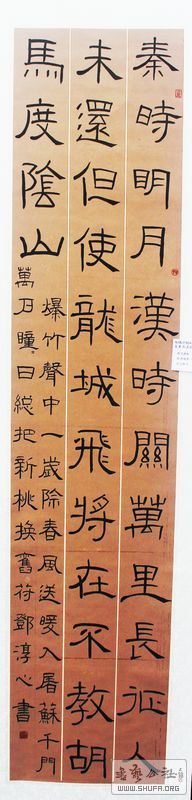 秦時明月漢時關萬里長征人
未還但使龍城飛將在不教胡
馬度陰山
爆竹聲中一歲除春風送暖入屠蘇千門
萬戶曈〻日總把新桃換舊符鄧淳心書
WWW.SHUFA.ORG